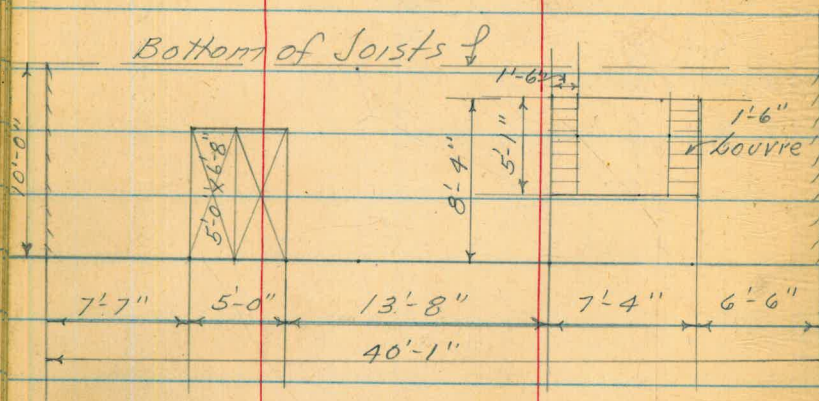 Bottom of Joists
1'-6"
10'-0"
5'-0" x 6'-8"
8'-4"
5'-1"
1'-6"
Louvre
7'-7" 5'-0" 13'-8" 7'-4" 6'-6"
40'-1"